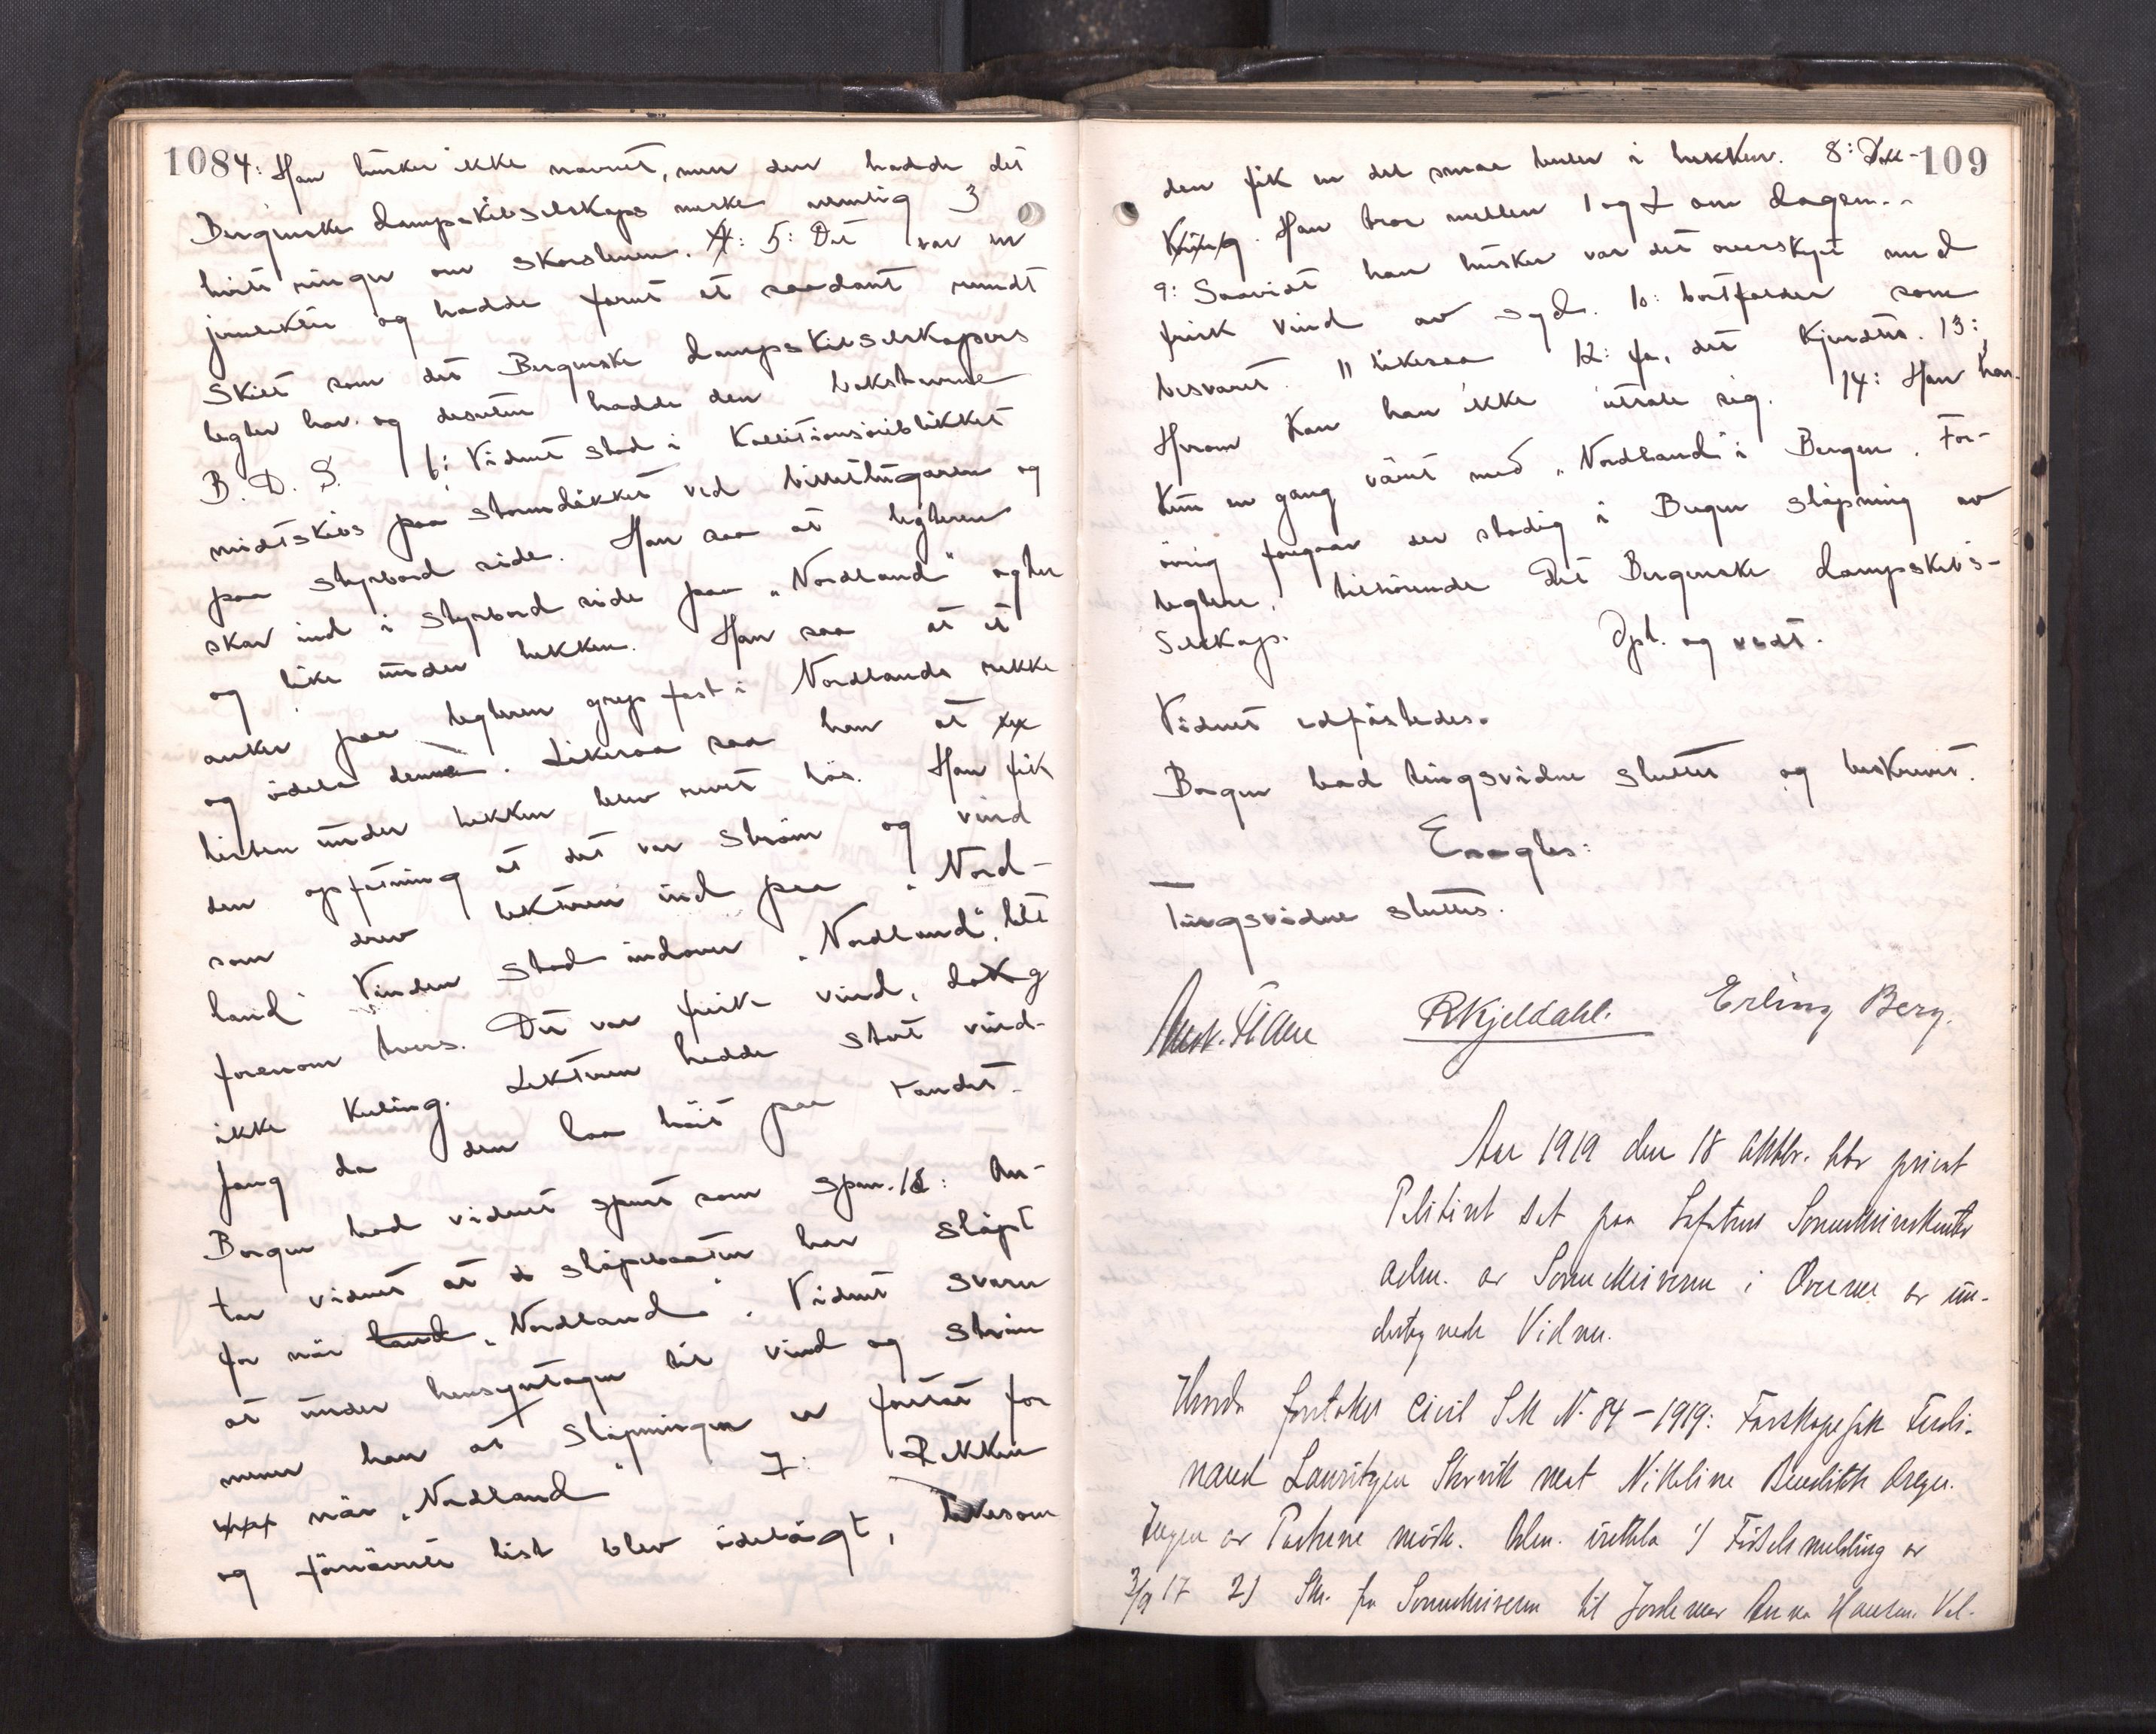 108
4: Han husker ikke navnet, men den hadde det
Bergenske Dampskibsselskaps merke nemlig 3
hvite ringer om skorstenen. 5: Det var en
jernlekter og hadde form at saadant rundt
skib som det Bergenske Dampskibsselskapers
legter har. og desuten hadde den bokstavene
B. D. S. 6: Vidnet stod i Kollisionsøieblikket
midtskibs paa stormdækket ved billetlugaren og
paa styrbord side. Han saa at legteren
skar ind i styrbord side paa "Nordland" agter
og like under hekken. Han saa at et
anker paa legteren grep fast i Nordlands rekke
og ødela denne. Likesaa saa han at
listen under hekken blev revet løs. Han fik
den opfatning at det var strøm og vind
som drev lekteren ind paa "Nord-
land" Vinden stod indover "Nordland", litt
forenom tvers. Det var frisk vind, dog
ikke kuling. Lekteren hadde stort vind-
fang da den laa høit paa vandet.
Borgen bad vidnet spurt som spm. 15: An-
tar vidnet at slæpebaaten har slæpt
for nær land "Nordland". Vidnet svarer
at under hensyntagen til vind og strøm
mener han at slæpningen er foretat for
nær "Nordland" 7: Rekken
og førnævnte list blev ødelagt, likesom
109
den fik en del smaa buler i hekken. 8:
Han tror mellem 1 og 2 om dagen.
9: Saavidt han husker var det overskyet med
frisk vind av syd. 10: bortfalder som
besvaret. 11 likesaa 12: Ja, det kjendtes. 13:
Herom kan han ikke uttale sig. 14: Han har
kun en gang været med "Nordland" i Bergen. For-
øvrig foregaar der stadig i Bergen slæpning av
legtere, tilhørende Det Bergenske Dampskibs-
Selskap. Opl. og vedt.
Vidnet edfæstedes.
Borgen bad tingsvidne sluttet og beskrevet.
Eragtes:
Tingsvidne sluttes.
RKjeldahl. Erling Berg.
Aar 1919 den 18 Oktbr. blev privat
Politiret sat paa Lofotens Sorenskriverkontor
adm. av Sorenskriveren i Overvær av un-
dertegnede Vidner.
Hvorda foretokes Civil Sak N. 84 - 1919: Farskapssak Ferdi-
nand Lauritzen Skrovik mot Nikoline Benedikte Aregen.
Ingen av Parterne mødte. Adm. fremla 1) Fødselsmelding av
3/9 17 2) Skr. fra Sorenskriveren til Jordemor Anna Hansen. Val-